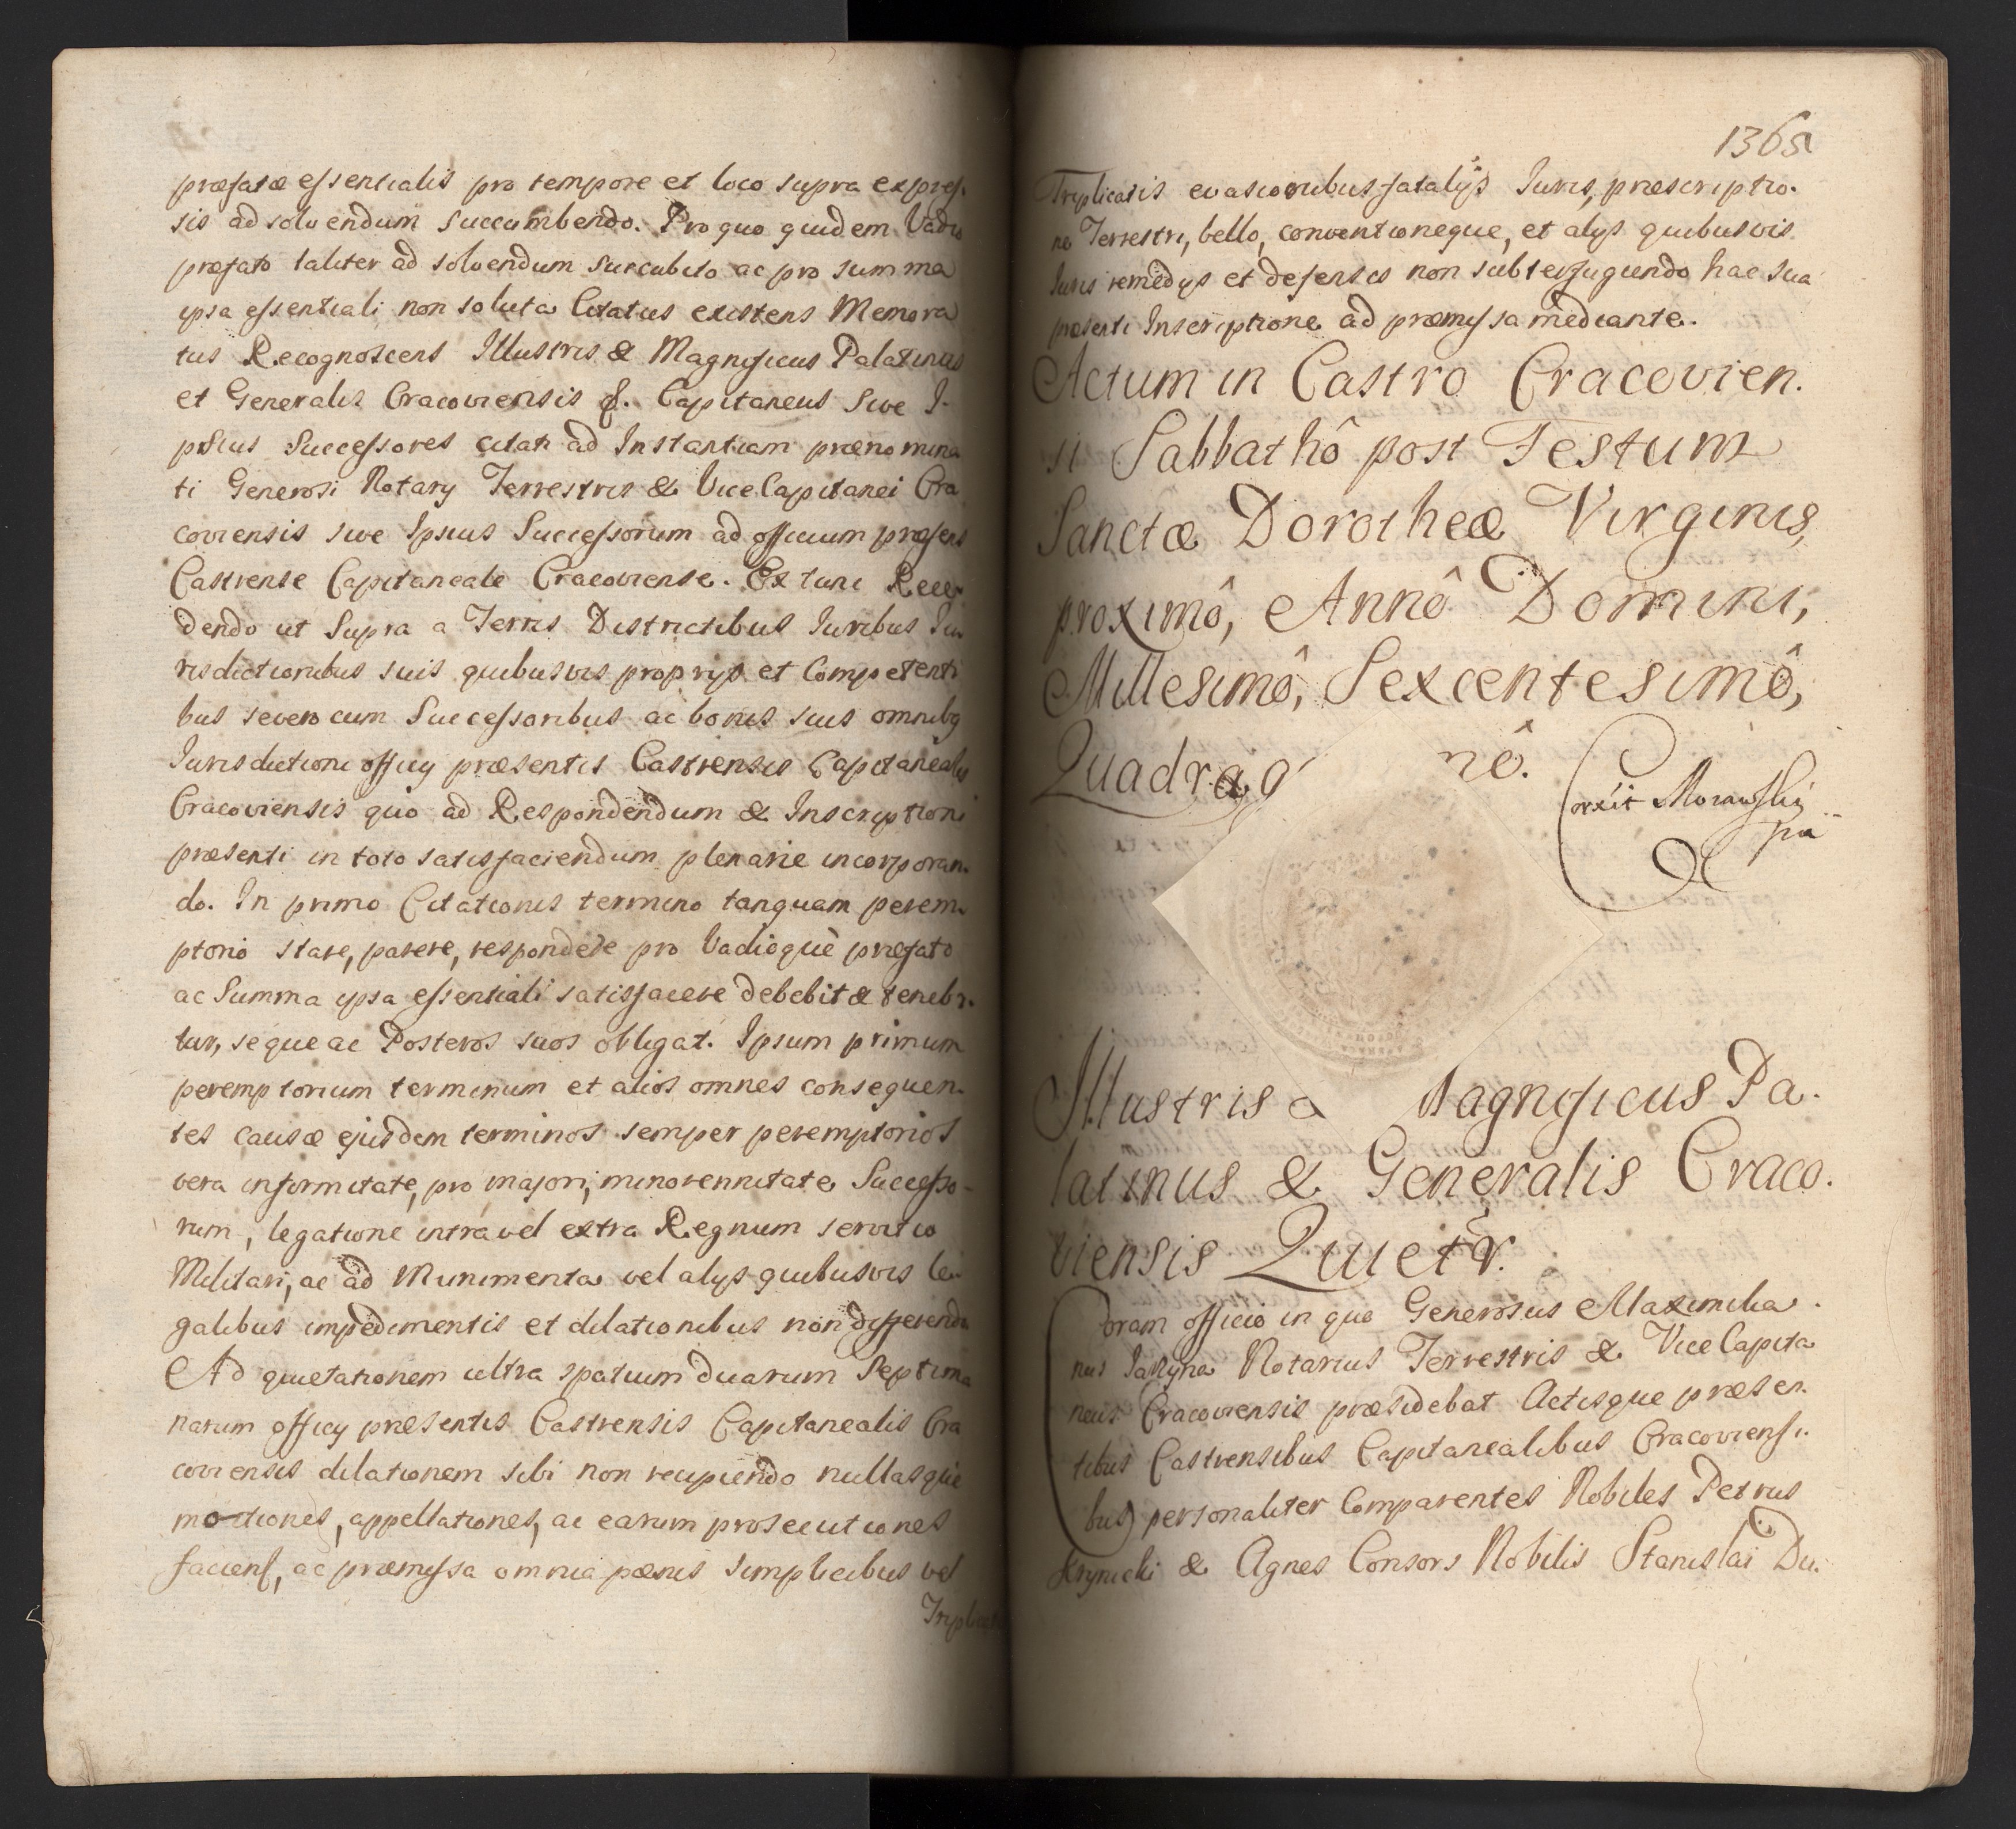 præfatæ essentialis pro tempore et loco supra expres.
sis ad solvendum succumbendo. Pro quo quidem Vadio
præfato taliter ad solvendum succubito ac pro summa
ipsa essentiali non soluta Citatus existens Memora
tus Recognoscens Illustris & Magnificus Palatinus
et Generalis Cracoviensis &. Capitaneus sive I-
psius Successores citati ad Instantiam prænomina
ti Generosi Notary Terrestris & ViceCapitanei Cra
coviensis sive Ipsius Successorum ad officium præsens
Castrense Capitaneale Cracoviense. Ex tunc Rece
dendo ut Supra a Terris Districtibus Iuribus Iu
risdictionibus suis quibusvis proprys et Competenti
bus severo cum Successoribus ac bonis suis omnibq
Iurisdictioni officy præsentis Castrensis Capitanealis
Cracoviensis quo ad Respondendum & Inscriptioni
præsenti in toto satisfaciendum plenarie incorporan.
do. In primo Citationis termino tanquam perem.
ptorio stare, parere, respondere pro Vadioquè præfato
ac Summa ipsa essentiali satisfacere debebit & tenebi.
tur, seque ac Posteros suos obligat. Ipsum primum
peremptorium terminum et alios omnes consequen.
tes causæ ejusdem terminos semper peremptorios
vera infirmitate, pro majori, minorennitate Successo-
rum, legatione intra vel extra Regnum servitio
Militari, ac ad Munimenta vel alys quibusvis le.
galibus impedimentis et dilationibus non differendo
Ad quietationem ultra spatium duarum Septima
narum officy præsentis Castrensis Capitanealis Cra
coviensis dilationem sibi non recipiendo nullasque
motiones, appellationes, ac earum prosecutiones
faciens, ac præmissa omnia pænis simplicibus vel
Triplicatis
1365
Triplicatis evasionibus fatalÿs Iuris, præscriptio.
ne Terrestri, bello, conventioneque, et alys quibusvis
Iuris remedys et defensis non subterfugiendo hac sua
præsenti Inscriptione ad præmissa mediante.
Actum in Castro Cracovien.
si Sabbathô post Festum
Sanctæ Dorotheæ Virginis,
proximô, Annô Domini,
Millesimô, Sexcentesimô,
Quadrag nô.
Correxit Morawski
pia
Illustris & Magnificus Pa.
latinus & Generalis Craco.
viensis Quietr.
Coram officio in que Generosus Maximilia.
nus Jakyna Notarius Terrestris & ViceCapita
neus Cracoviensis præsidebat Actisque præsen.
tibus Castrensibus Capitanealibus Cracoviensi.
bus personaliter Comparentes Nobiles Petrus
Krynicki & Agnes Consors Nobilis Stanislai Du.